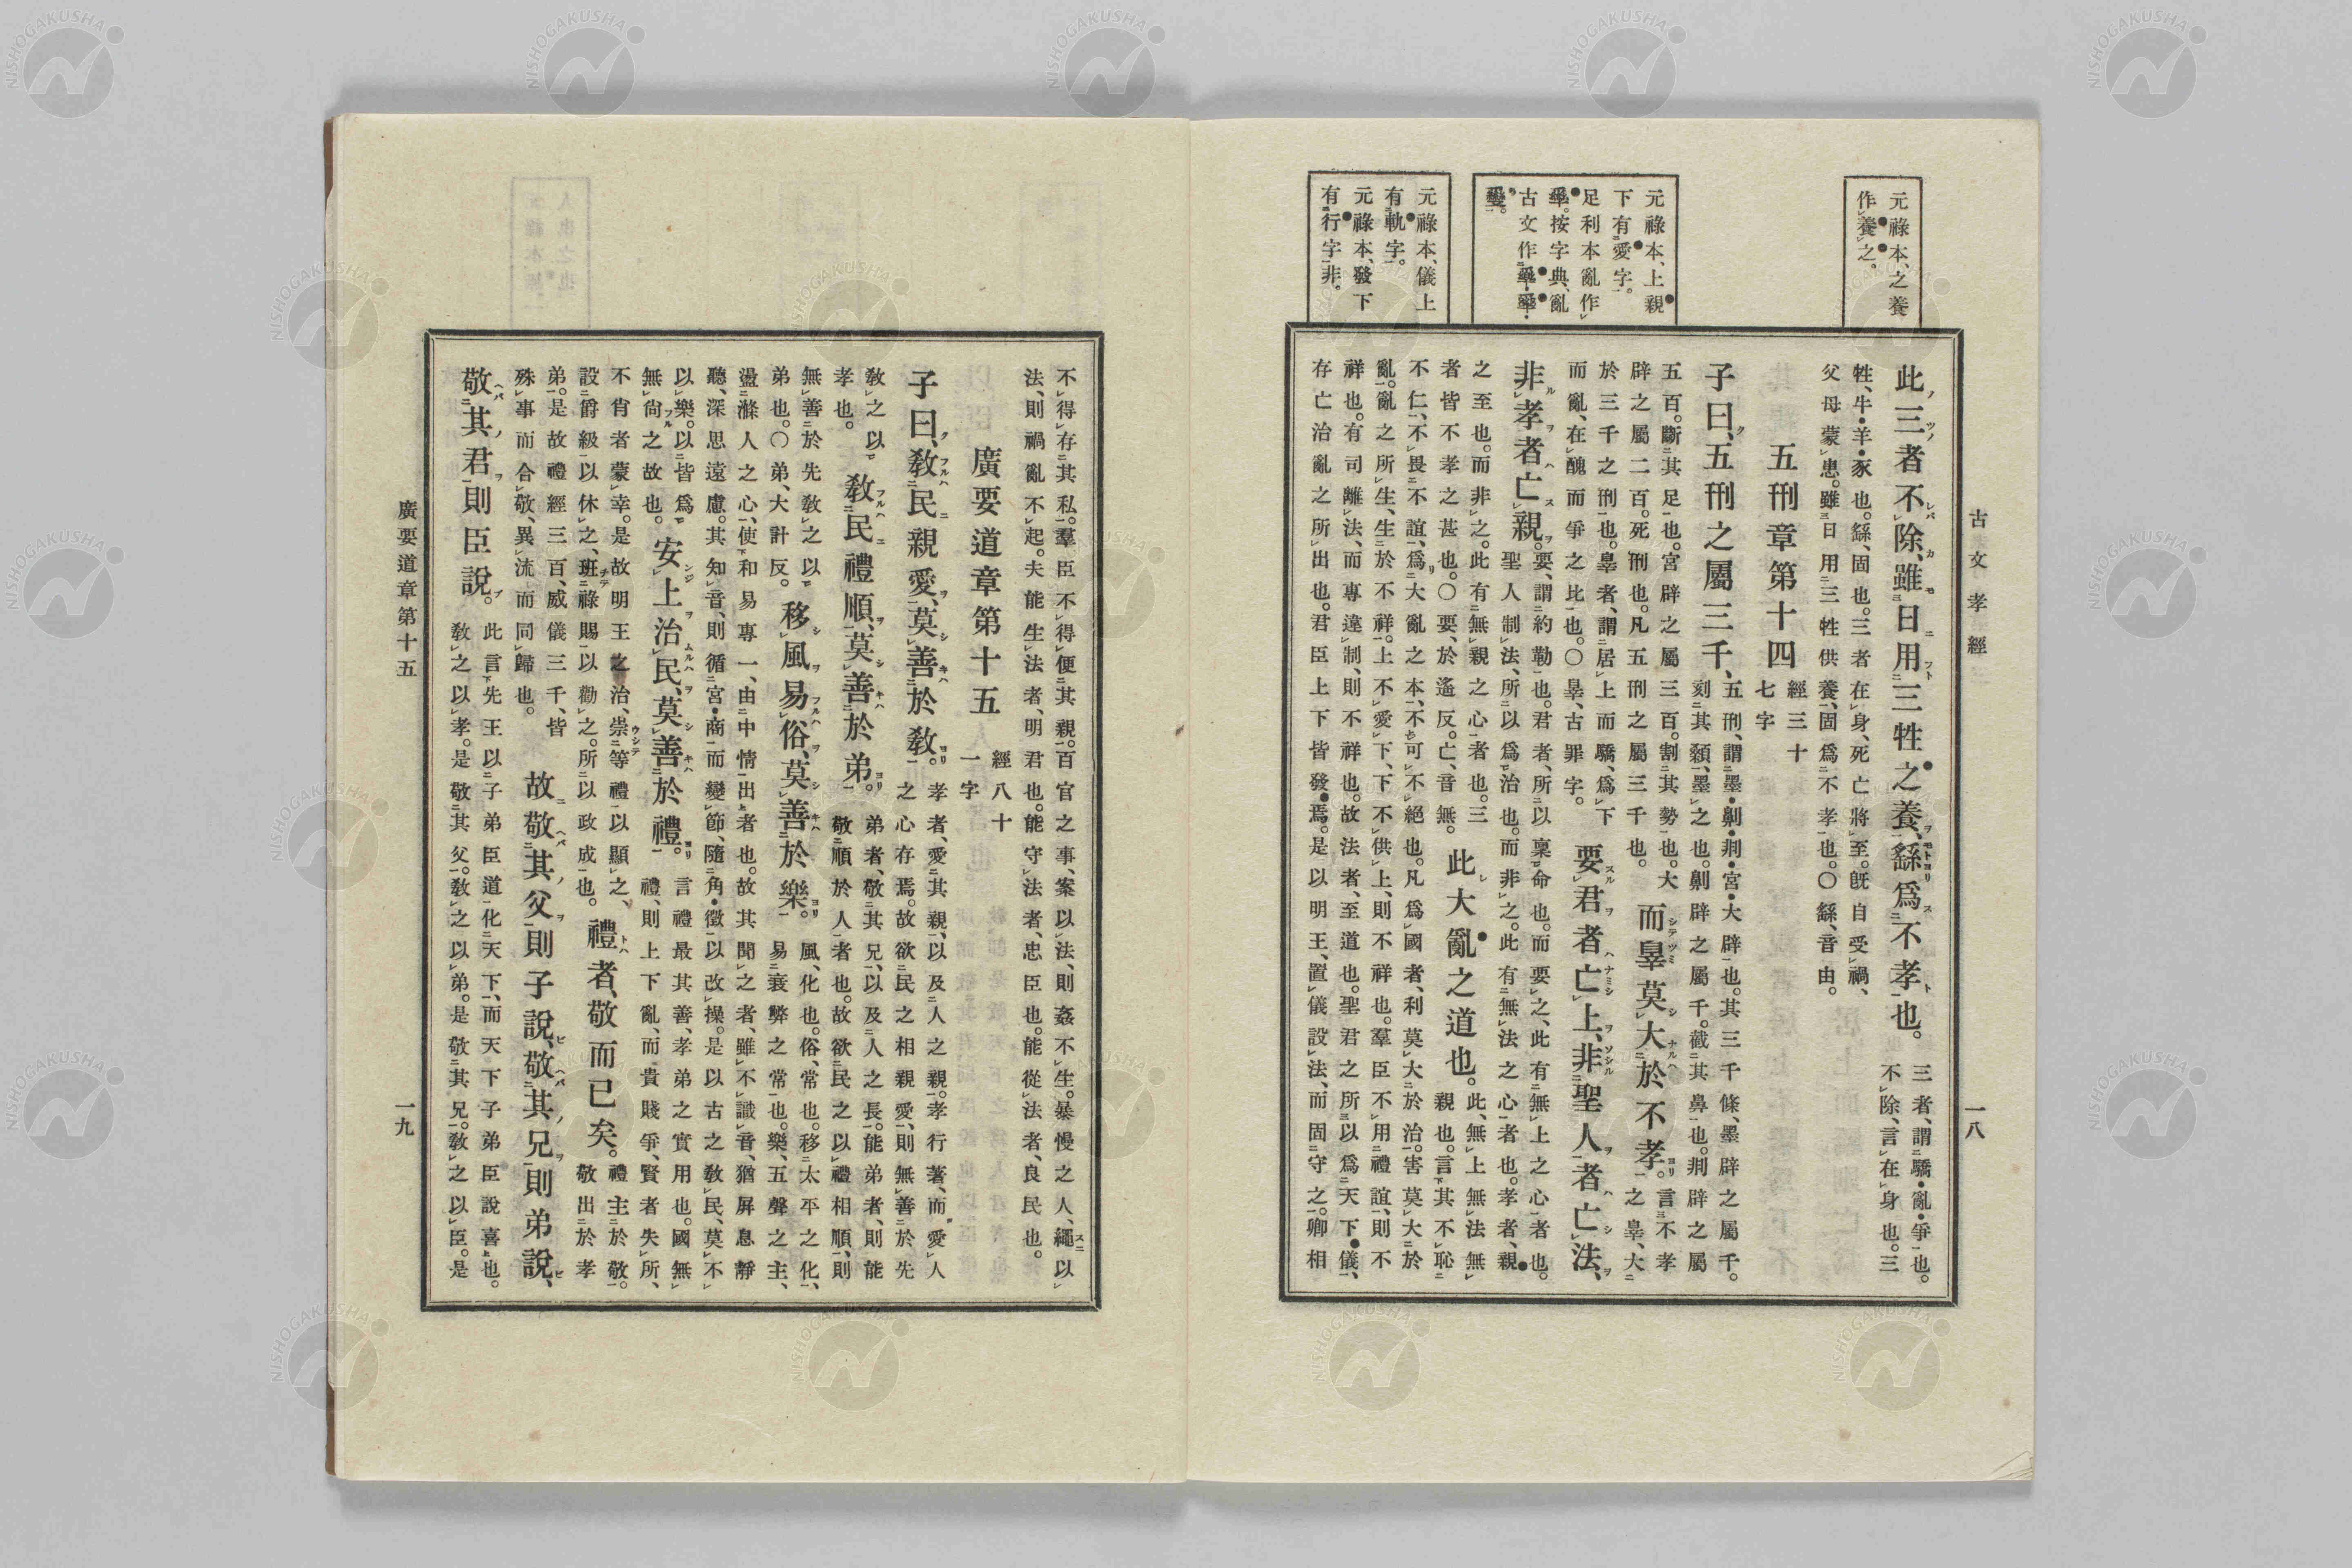 古文孝經
一八
元祿本、之養
作養之。
元祿本、上親
下有愛字。
足利本亂作
按字典、亂
古文作
元祿本、儀上
有軌字。
元祿本、發下
有行字非。
此三者不除、雖日用三牲之養、繇爲不孝也。
三者、謂驕・亂・爭也。
不除、言在身也。三
牲、牛・羊・豕也。繇、固也。三者在身、死亡將至。旣自受禍、
父母蒙患。雖日用三牲供養、固爲不孝也。〇繇、音由。
五刑章第十四
經三十
七字
子曰、五刑之屬三千、
五刑、謂墨・劓・剕・宮・大辟也。其三千條、墨辟之屬千。
刻其顙、墨之也。劓辟之屬千。截其鼻也。剕辟之屬
五百。斷其足也。宮辟之屬三百。割其勢也。大
辟之屬二百。死刑也。凡五刑之屬三千也。
而辠莫大於不孝。
言不孝
之辠、大
於三千之刑也。辠者、謂居上而驕、爲下
而亂、在醜而爭之比也。〇辠、古罪字。
要君者亡上、非聖人者亡法、
非孝者亡親。
要、謂約勒也。君者、所以稟命也。而要之、此有無上之心者也。
聖人制法、所以爲治也。而非之。此有無法之心者也。孝者、親
之至也。而非之。此有無親之心者也。三
者皆不孝之甚也。〇要、於遙反。亡、音無。
此大亂之道也。
此、無上無法無
親也。言其不恥
不仁、不畏不誼、爲大亂之本、不可不絕也。凡爲國者、利莫大於治。害莫大於
亂。亂之所生、生於不祥。上不愛下、下不供上、則不祥也。羣臣不用禮誼、則不
祥也。有司離法、而專違制、則不祥也。故法者、至道也。聖君之所以爲天下儀、
存亡治亂之所出也。君臣上下皆發焉。是以明王、置儀設法、而固守之。卿相
不得存其私。羣臣不得便其親。百官之事、案以法、則姦不生。暴慢之人、繩以
法、則禍亂不起。夫能生法者、明君也。能守法者、忠臣也。能從法者、良民也。
廣要道章第十五
經八十
一字
子曰、敎民親愛、莫善於敎。
孝者、愛其親、以及人之親。孝行著、而愛人
之心存焉。故欲民之相親愛、則無善於先
敎之以
孝也。
敎民禮順、莫善於弟。
弟者、敬其兄、以及人之長。能弟者、則能
敬順於人者也。故欲民之以禮相順、則
無善於先敎之以
弟也。〇弟、大計反。
移風易俗、莫善於樂。
風、化也。俗、常也。移太平之化、
易衰弊之常也。樂、五聲之主、
盪滌人之心、使和易專一、由中情出者也。故其聞之者、雖不識音、猶屏息靜
聽、深思遠慮。其知音、則循宮・商而變節、隨角・徵以改操。是以古之敎民、莫不
以樂。以皆爲
無尙之故也。
安上治民、莫善於禮。
言禮最其善、孝弟之實用也。國無
禮、則上下亂、而貴賤爭、賢者失所、
不肖者蒙幸。是故明王之治、崇等禮以顯之、
設爵級以休之、班祿賜以勸之。所以政成也。
禮者、敬而已矣。
禮主於敬。
敬出於孝
弟。是故禮經三百、威儀三千、皆
殊事而合敬、異流而同歸也。
故敬其父、則子說、敬其兄、則弟說、
敬其君、則臣說。
此言先王以子弟臣道化天下、而天下子弟臣說喜也。
敎之以孝。是敬其父。敎之以弟。是敬其兄。敎之以臣。是
廣要道章第十五
一九
NISHOGAKUSHA